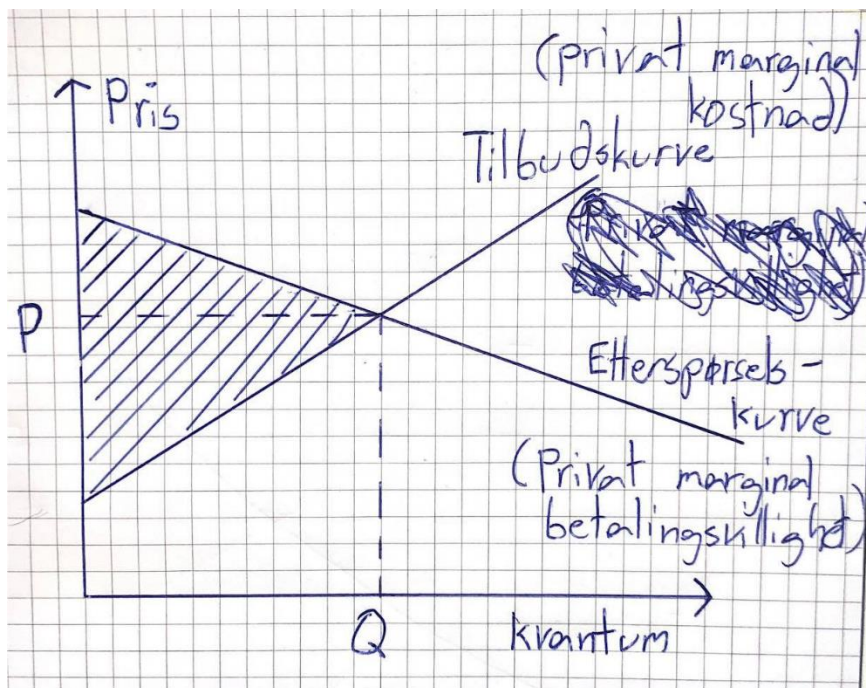 Pris
(privat marginal
kostnad)
Tilbudskurve
P
Etterspørsels-
kurve
(Privat marginal
betalingsvillighet)
Q
kvantum